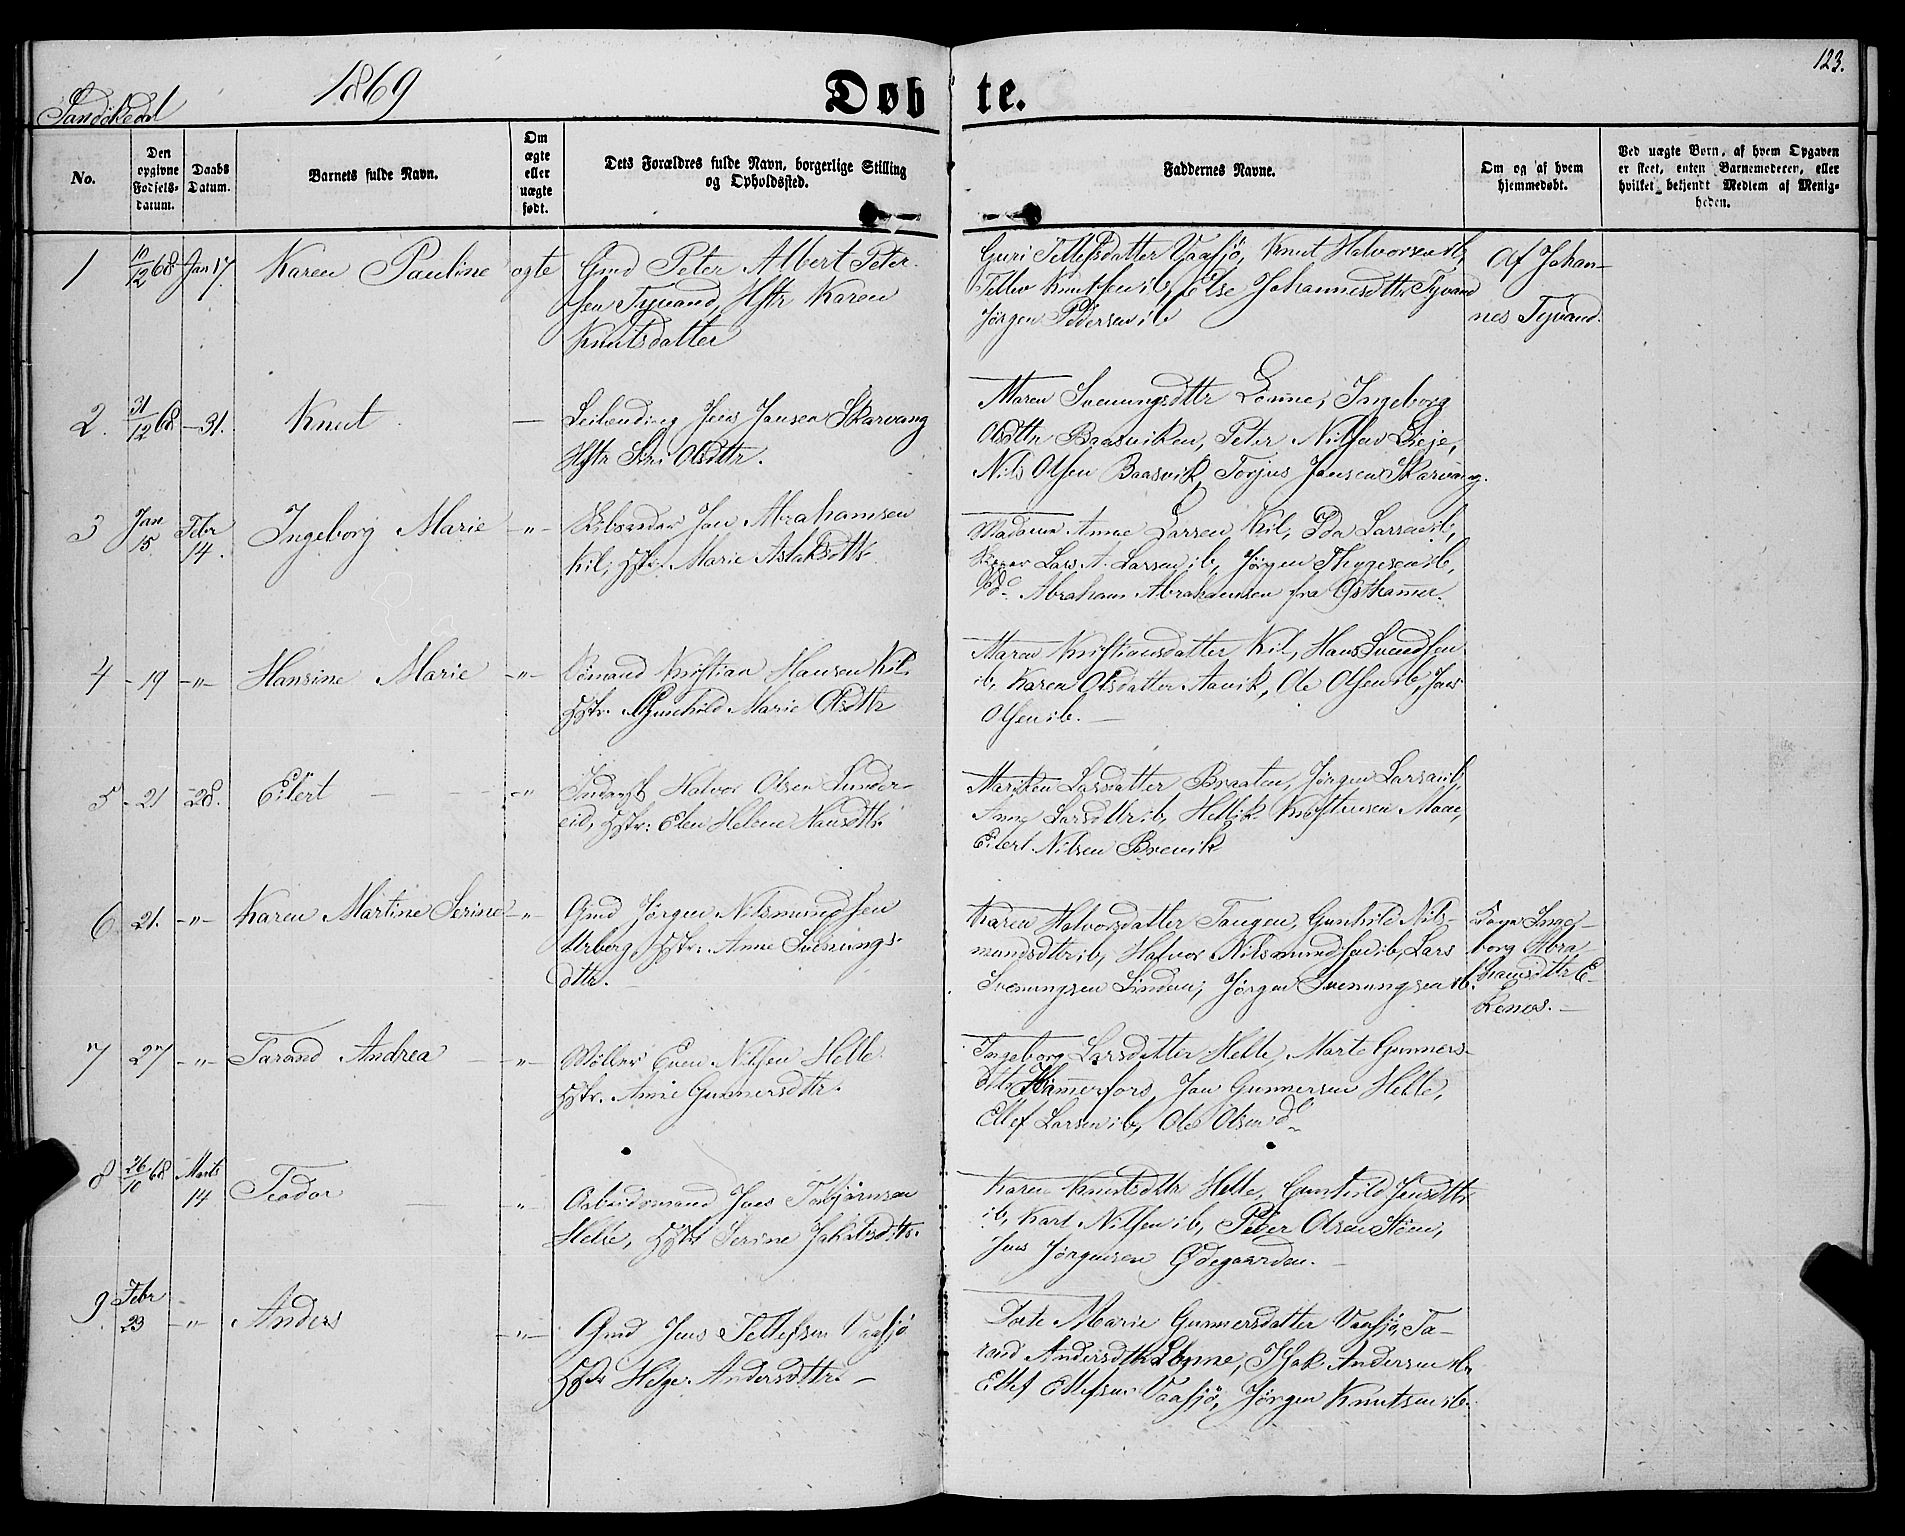 123.
Sandøkedal
1869
Døbte.
No.
Den opgivne Fødsels-datum.
Daabs Datum.
Barnets fulde Navn.
Om ægte eller uægte født.
Dets Forældres fulde Navn, borgerlige Stilling og Opholdssted.
Faddernes Navne.
Om og af hvem hjemmedøbt.
Ved uægte Børn, af hvem Opgaven er skeet, enten Barnemoderen, eller hvilket bekjendt Medlem af Menigheden.
1 10/12 68 Jan 17. Karen Pauline ægte
Gmd Peter Albert Peter-
sen Tyvand, Hstr Karen
Knutsdatter
Guri Tellefsdatter Vaasjø, Knut Halvorsen ib,
Tellev Knutsen ib, Else Johannesdtr Tyvand
Jørgen Pedersen ib
Af Johan-
nes Tyvand.
2. 31/12 68 - 31. Knut -
Leilænding Jens Jansen Skarvang
Hstr Siri Olsdtr.
Maren Sveningsdtr Lønne, Ingeborg
Olsdtr Baasviken, Peter Nilsen Leje,
Nils Olsen Baasvik, Torjus Jansen Skarvang.
3 Jan 15 Febr 14. Ingeborg Marie -"-
Jan Abrahamsen
Kil, Hstr. Marie Aslaksdtr
Madam Anne Larsen Kil, Ida Larsen ib,
Lars A. Larsen ib, Jørgen Thygesen ib,
Abraham Abrahamsen fra Østhammer.
4 - 19 -"- Hansine Marie -"-
Sømand Kristian Hansen Kil
Hstr. Gunhild Marie Olsdtr
Maren Kristiansdatter Kil, Hans Svendsen
ib, Karen Olsdatter Aavik, Ole Olsen ib, Jens
Olsen ib. -
5 - 21 - 28. Eilert - -"-
Halvor Olsen Lunder-
eid, Hstr: Elen Helene Hansdtr.
Mariken Larsdatter Braaten, Jørgen Larsen ib,
Anne Larsdtr ib, Hellik Kristensen Moen,
Eilert Nilsen Brevik
6 21. -"- Karen Martine Serine -"-
Gmd Jørgen Nilsmundsen
Urberg, Hstr. Anne Svenungs-
dtr.
Karen Halvorsdatter Tangen, Gunhild Nils-
mundsdtr ib, Halvor Nilsmundsen ib, Lars
Svenungsen Linden, Jørgen Svenungsen ib.
Inge-
borg Abra-
hamsdtr E-
kenes. -
7 27 -"- Tarand Andrea - -"-
Møller Even Nilsen Helle
Hstr. Anne Gunnersdtr.
Ingeborg Larsdatter Helle, Marte Gunners-
dtr Hammerfors, Jan Gunnersen Helle,
Ellef Larsen ib, Ole Olsen do
8 26/10 68 Marts 14 Teodor - "
Arbeidsmand Jens Torbjørnsen
Helle, Hstr Serine Jakobsdtr.
Karen Knutsdtr Helle, Gunhild Jensdtr
ib, Karl Nilsen ib, Peder Olsen Støen,
Jens Jørgensen Ødegaarden. -
9. Febr 23 -"- Anders -"-
Gmd Jens Tellefsen Vaasjø
Hstr Helge Andersdtr. -
Dorte Marie Gunnersdatter Vaasjø, Ta-
rand Andersdtr Lønne, Isak Andersen ib,
Ellef Ellefsen Vaasjø, Jørgen Knutsen ib.